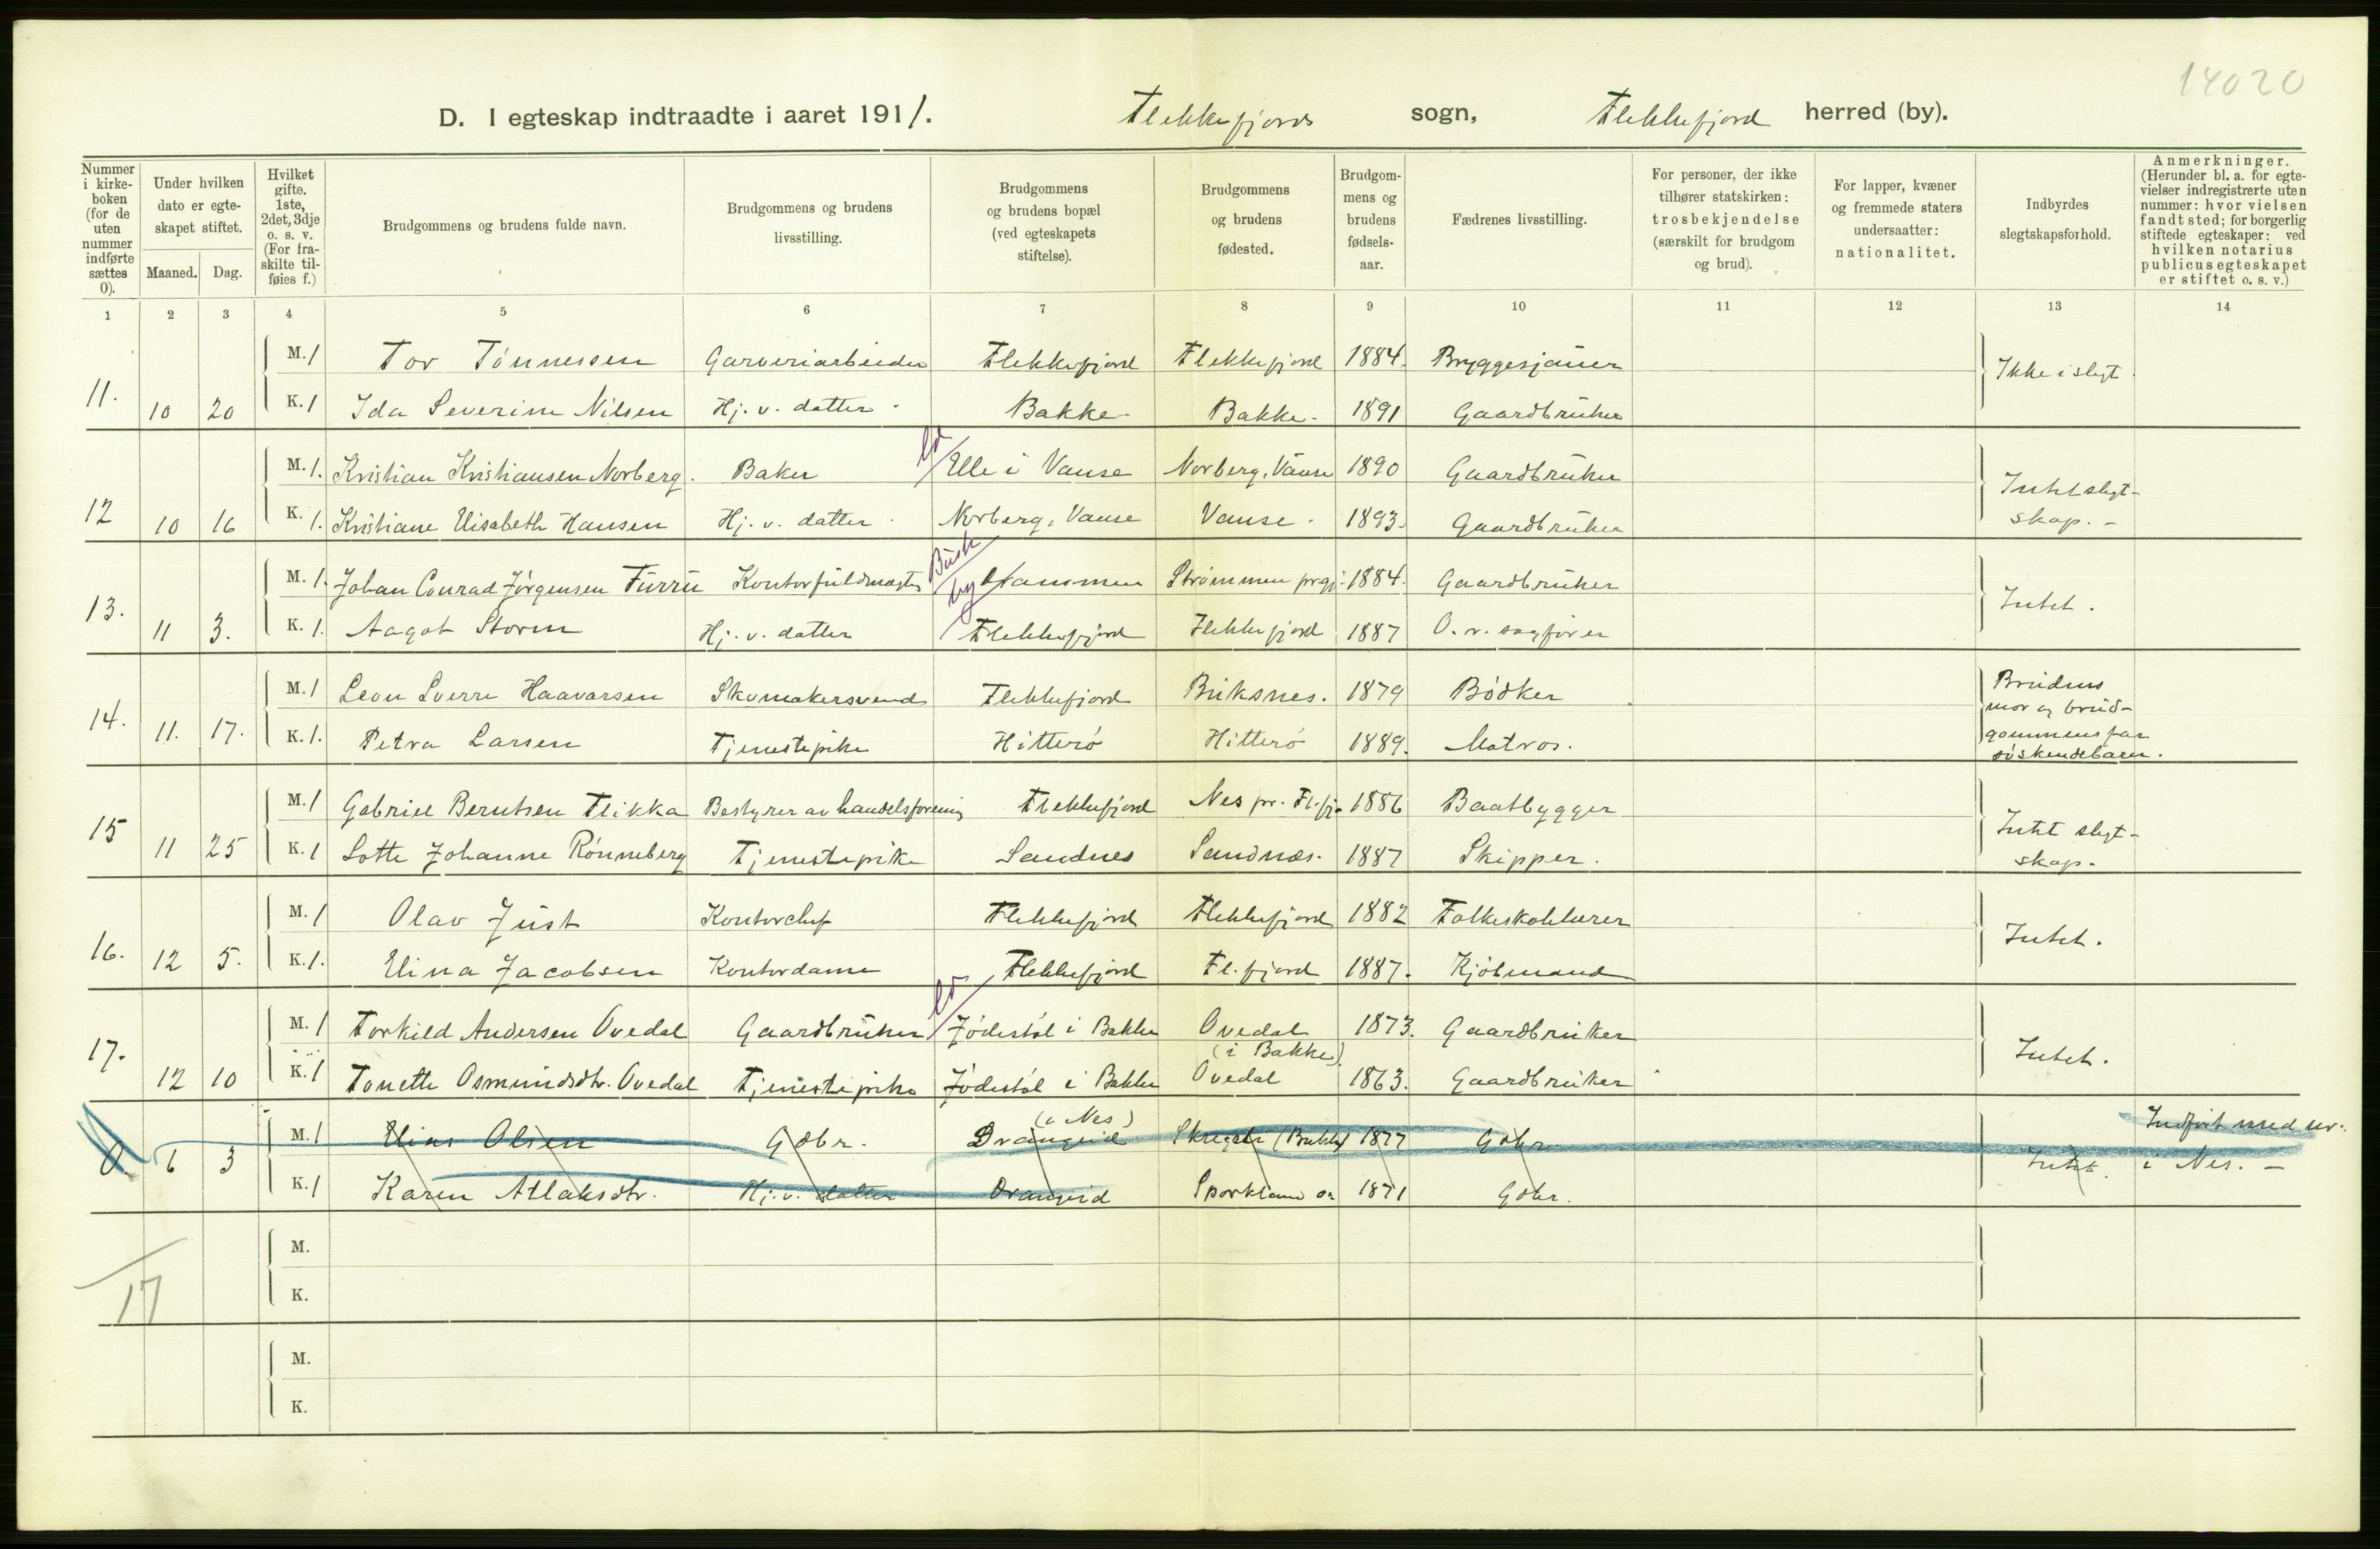 14020
D. I egteskap indtraadte i aaret 1911. Flekkefjords sogn, Flekkefjord herred (by).
Nummer i kirkeboken (for de uten nummer indførte sættes 0).
Under hvilken dato er egteskapet stiftet.
Maaned. Dag.
Hvilket gifte. 1ste, 2det, 3dje o. s. v. (For fraskilte tilføies f.)
Brudgommens og brudens fulde navn.
Brudgommens og brudens livsstilling.
Brudgommens og brudens bopæl (ved egteskapets stiftelse).
Brudgommens og brudens fødested.
Brudgommens og brudens fødselsaar.
Fædrenes livsstilling.
For personer, der ikke tilhører statskirken: trosbekjendelse (særskilt for brudgom og brud).
For lapper, kvæner og fremmede staters undersaatter: nationalitet.
Indbyrdes slegtskapsforhold.
Anmerkninger. (Herunder bl. a. for egtevielser indregistrerte uten nummer: hvor vielsen fandt sted; for borgerlig stiftede egteskaper: ved hvilken notarius publicus egteskapet er stiftet o. s. v.)
1 2 3 4 5 6 7 8 9 10 11 12 13 14
M. 1 Tov Tönnessen Garveriarbeider Flekkefjord Flekkefjord 1884. Bryggesjauer Ikke i slegt
11. 10 20 K. 1 Ida Severine Nilsen Hj. v. datter. Bakke Bakke. 1891 Gaardbruker
M. 1. Kristian Kristiansen Norberg. Baker Elle i Vanse Norberg, Vanse 1890 Gaardbruker Intet slegt-
12 10 16 K. 1. Kristiane Elisabeth Hansen Hj. v. datter. Norberg, Vanse Vanse. 1893. Gaardbruker skap. -
Busk
by
M. 1. Johan Conrad Jörgensen Furru Kontorfuldmægtig Strömmen prgj. 1884. Gaardbruker Intet.
13. 11 3. K. 1. Aagot Storm Hj. v. datter Flekkefjord Flekkefjord 1887 O. r. sagförer
M. 1 Leon Sverre Haavarsen Skomakersvend Flekkefjord Buksnes. 1879 Bödker Brudens mor og brud-
14. 11. 17. K. 1. Petra Larsen Tjenestepike Hitterö Hitterö 1889. Matros. gommens far söskendebarn.
M. 1 Gabriel Berntsen Flikka Bestyrer av handelsforening Flekkefjord Nes pr. Fl.fj. 1886 Baatbygger Intet slegt-
15 11 25 K. 1 Lotte Johanne Rönneberg Tjenestepike Sandnes Sandnæs. 1887 Skipper. skap.
M. 1 Olav Just Kontorchef Flekkefjord Flekkefjord 1882 Folkeskolelærer Intet.
16. 12 5. K. 1. Elina Jacobsen Kontordame Flekkefjord Fl.fjord 1887. Kjöbmand
M. 1 Torkild Andersen Ovedal Gaardbruker Jödestöl i Bakke Ovedal (i Bakke) 1873. Gaardbruker Intet.
17. 12 10 K. 1 Tonette Osmundsdtr. Ovedal Tjenestepike Jödestöl i Bakke Ovedal 1863. Gaardbruker
M. 1 Elias Olsen Gdbr. Drangeid (i Nes) (Bakke) 1877 Gdbr. Intet. Indfört med nr.
0 6 3 K. 1 Karen Atlaksdtr. Hj. v. datter Drangeid 1871 Gdbr. i Nes. -
M.
K.
17
M.
K.